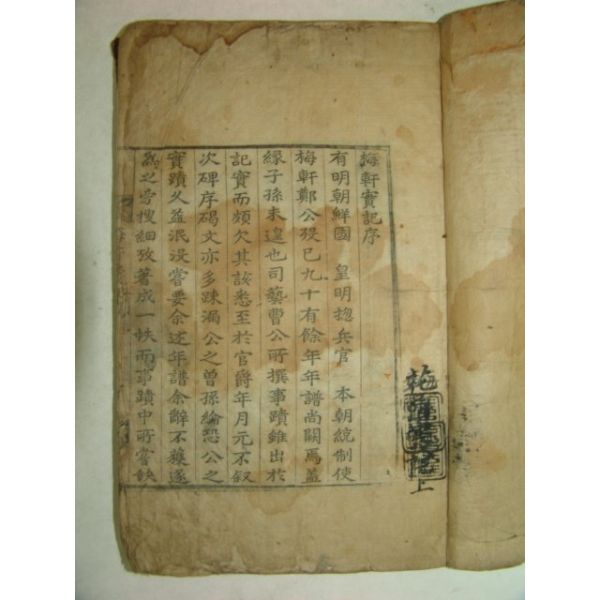 梅軒實記序
有明朝鮮國 皇明摠兵官 本朝統制使
梅軒鄭公歿已九十有餘年年譜尚闕焉蓋
緣子孫未遑也司藝曺公所撰事蹟雖出於
記實而頗欠其該悉至於官爵年月元不叙
次碑序碣文亦多踈漏公之曾孫綸恐公之
實蹟久益泯沒嘗要余述年譜余辭不獲遂
爲之旁搜細攷著成一帙而事蹟中所嘗缺
上